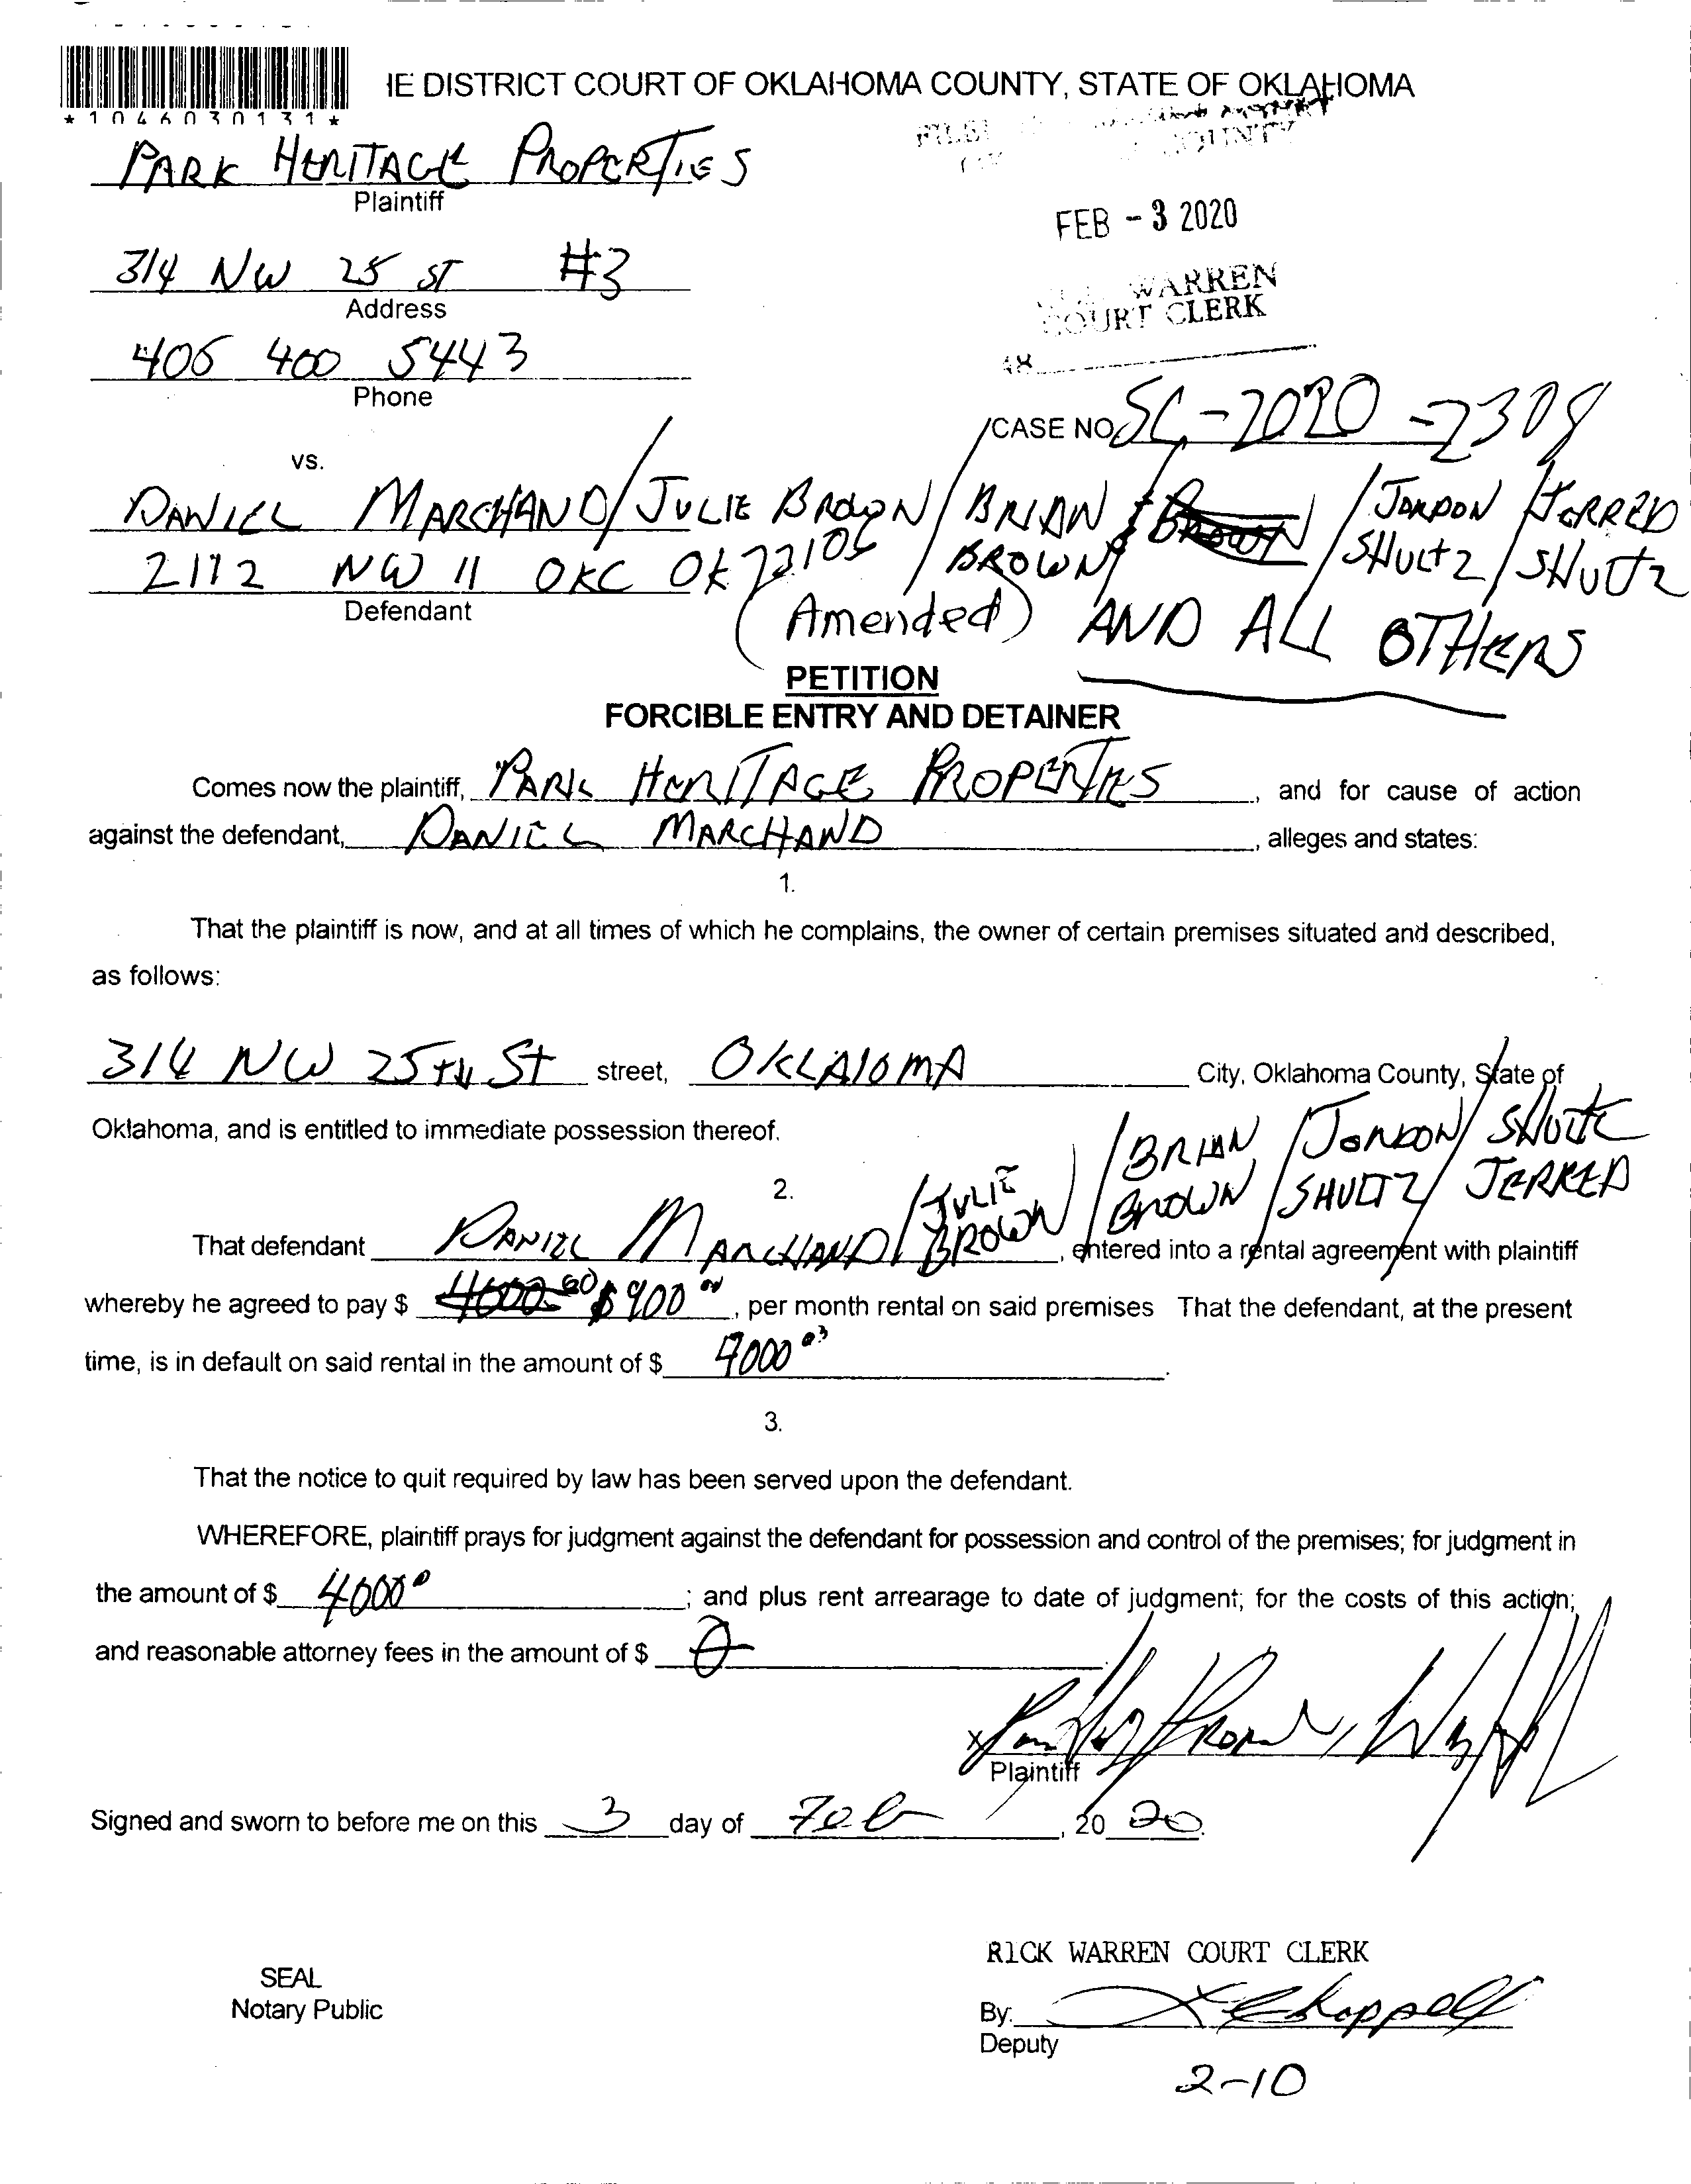 IE DISTRICT COURT OF OKLAHOMA COUNTY, STATE OF OKLAHOMA
*1046030131*
PARK HERITAGE PROPERTIES
Plaintiff
COUNTY
FEB - 3 2020
314 NW 25 ST #3
Address
WARREN
COURT CLERK
405 400 5443
Phone
48
CASE NO. SC-2020-2308
vs.
DANIEL MARCHAND/JULIE BROWN/BRIAN BROWN/JORDON SHULTZ/JERRED SHULTZ
2112 NW 11 OKC OK 73106
Defendant
(Amended) AND ALL OTHERS
PETITION
FORCIBLE ENTRY AND DETAINER
Comes now the plaintiff, PARK HERITAGE PROPERTIES, and for cause of action
against the defendant, DANIEL MARCHAND, alleges and states:
1.
That the plaintiff is now, and at all times of which he complains, the owner of certain premises situated and described,
as follows:
314 NW 25TH St street, OKLAIOMA City, Oklahoma County, State of
Oklahoma, and is entitled to immediate possession thereof.
2.
That defendant DANIEL MARCHAND/JULIE BROWN/BRIAN BROWN/JORDON SHULTZ/SHULTZ JERRED, entered into a rental agreement with plaintiff
whereby he agreed to pay $ 4000.00 $900.00, per month rental on said premises That the defendant, at the present
time, is in default on said rental in the amount of $ 4000
3.
That the notice to quit required by law has been served upon the defendant.
WHEREFORE, plaintiff prays for judgment against the defendant for possession and control of the premises; for judgment in
the amount of $ 4000; and plus rent arrearage to date of judgment; for the costs of this action;
and reasonable attorney fees in the amount of $ 0
X
Plaintiff
Signed and sworn to before me on this 3 day of Feb, 20 20.
RICK WARREN COURT CLERK
SEAL
Notary Public
By: Chappell
Deputy
2-10